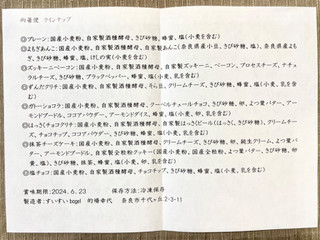 ◎プレーン：国産小麦粉、自家製酒種酵母、きび砂糖、蜂蜜、塩(小麦を含む)
◎よもぎあんこ：国産小麦粉、自家製酒種酵母、自家製あんこ(奈良県産小豆、きび砂糖、塩)、奈良県産よも
ぎ、きび砂糖、蜂蜜、塩、けしの実(小麦を含む)
◎ズッキーニベーコン：国産小麦粉、自家製酒種酵母、自家製ズッキーニ、ベーコン、プロセスチーズ、ナチュ
ラルチーズ、きび砂糖、ブラックペッパー、蜂蜜、塩(小麦、乳を含む)
◎ずんだクリチ：国産小麦粉、自家製酒種酵母、そら豆、クリームチーズ、きび砂糖、蜂蜜、塩(小麦、乳を含
む)
◎ガトーショコラ：国産小麦粉、自家製酒種酵母、クーベルチュールチョコ、きび砂糖、卵、よつ葉バター、アー
モンドプードル、ココアパウダー、アーモンドダイス、蜂蜜、塩(小麦、卵、乳を含む)
◎はっさくチョコクリチ：国産小麦粉、自家製酒種酵母、自家製はっさくピール(はっさく、きび砂糖)、クリームチー
ズ、チョコチップ、ココアパウダー、きび砂糖、蜂蜜、塩(小麦、乳を含む)
◎抹茶チーズケーキ：国産小麦粉、自家製酒種酵母、クリームチーズ、きび砂糖、卵、純生クリーム、よつ葉バ
ター、アーモンドプードル、自家製全粒粉クッキー(国産小麦粉、国産全粒粉、よつ葉バター、きび砂糖、卵
黄、塩)、きび砂糖、抹茶、蜂蜜、塩(小麦、卵、乳を含む)
◎塩チョコ：国産小麦粉、自家製酒種酵母、チョコチップ、きび砂糖、蜂蜜、塩(小麦、乳を含む)
賞味期限：2024．6．23　保存方法：冷凍保存
製造者：すいすいbagel　的場幸代　奈良市千代ヶ丘2-3-11